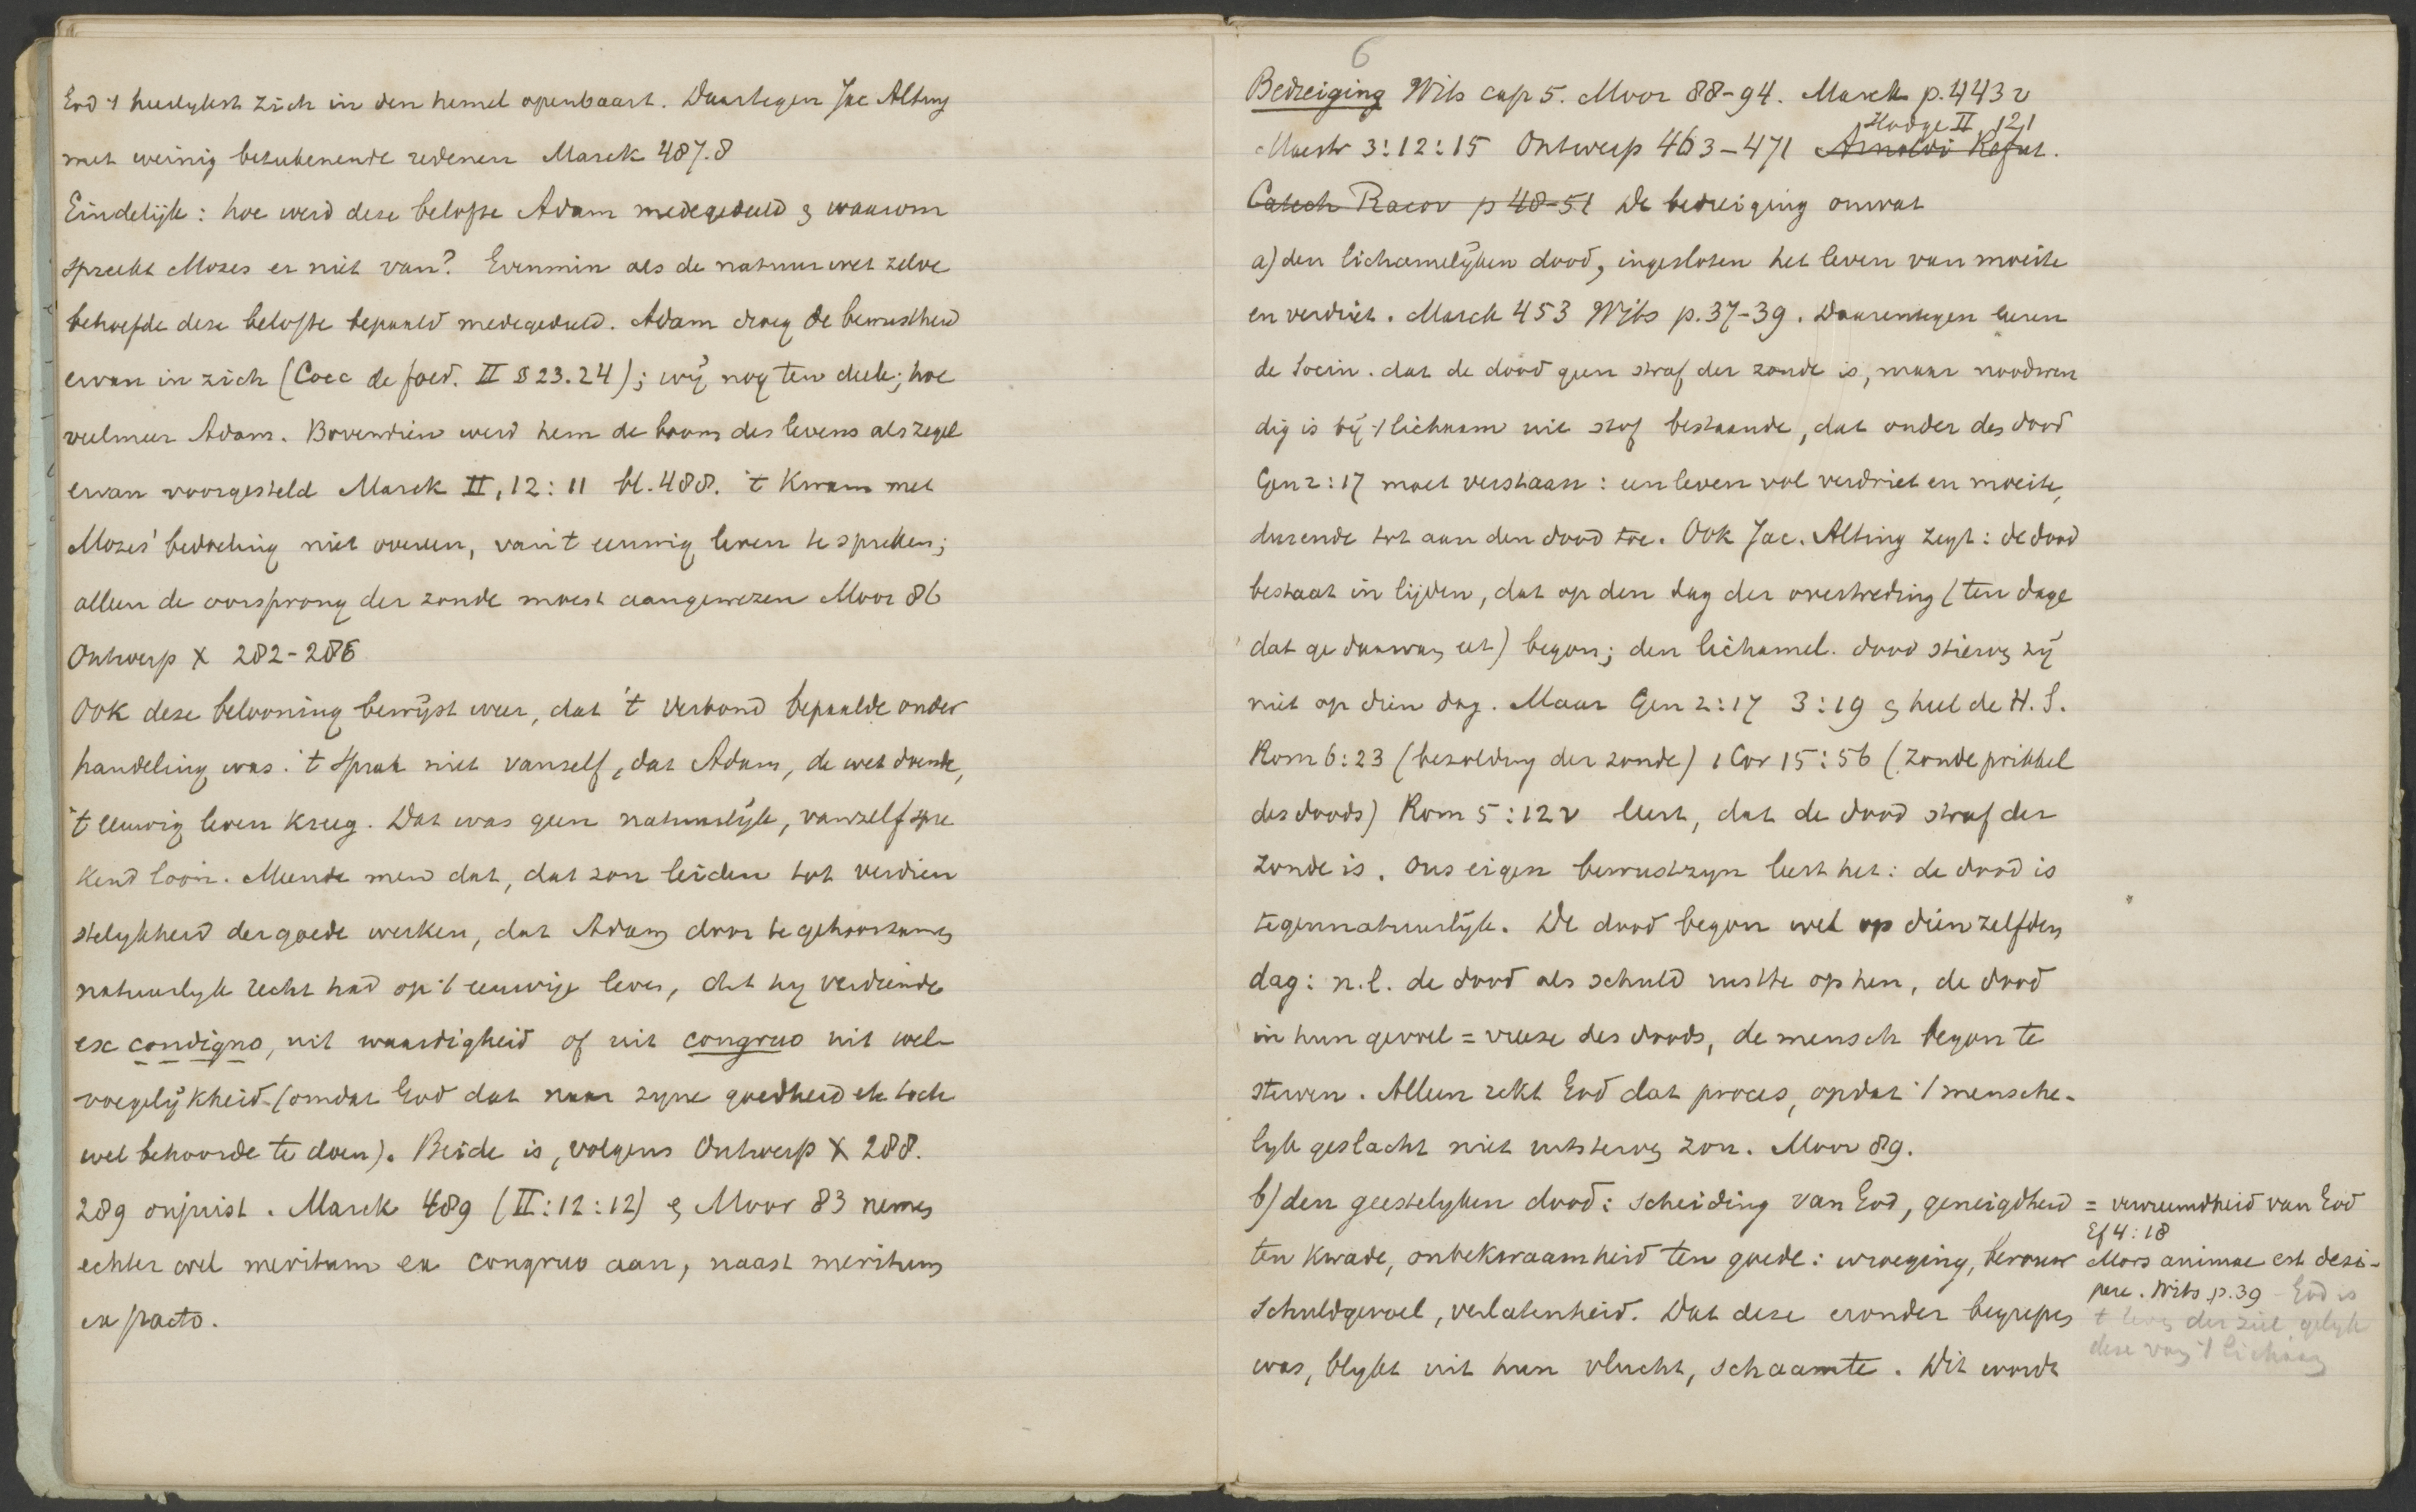 God 't heerlykst zich in den hemel openbaart. Daartegen Jac Alting
met weinig beteekenende redenen Marck 487.8
Eindelijk: hoe werd deze belofte Adam medegedeeld & waarom
spreekt Mozes er niet van? Evenmin als de natuurwet zelve
behoefde deze belofte bepaald medegedeeld. Adam droeg de bewustheid
ervan in zich (Cocc de foed. II § 23.24); wij nog ten deele; hoe
veelmeer Adam. Bovendien werd hem de boom des levens als zegel
ervan voorgesteld Marck II, 12:11 bl. 488. 't Kwam met
Mozes' bedoeling niet overeen, van 't eeuwig leven te spreken;
alleen de oorsprong der zonde moest aangewezen Moor 86
Ontwerp X 282-286
Ook deze belooning bewijst weer, dat 't verbond bepaalde onder
handeling was. 't Sprak niet vanself, dat Adam, de wet doende,
't eeuwig leven kreeg. Dat was geen natuurlijk, vanzelfspre
kend loon. Meende men dat, dat zou leiden tot verdien
stelykheid der goede werken, dat Adam door te gehoorzamen
natuurlyk recht had op 't eeuwige leven, dat hy verdiende
ex condigno, uit waardigheid of uit congruo uit wel-
voegelijkheid (omdat God dat naar zyne goedheid etc toch
wel behoorde te doen). Beide is, volgens Ontwerp X 288.
289 onjuist. Marck 489 (II:12:12) & Moor 83 nemen
echter wel meritum ex congruo aan, naast meritum
ex pacto.
6
Bedreiging Wits cap 5. Moor 88-94. Marck p. 443 v
Hodge II 121
Maestr 3:12:15 Ontwerp 463-471 Arnoldi Refut.
Catech Racov p 48-51 De bedreiging omvat
a) den lichamelijken dood, ingesloten het leven van moeite
en verdriet. Marck 453 Wits p. 37-39. Daarentegen leeren
de Socin. dat de dood geen straf der zonde is, maar noodwen
dig is bij 't lichaam uit stof bestaande, dat onder des dood
Gen 2:17 moet verstaan: een leven vol verdriet en moeite,
durende tot aan den dood toe. Ook Jac. Alting zegt: de dood
bestaat in lijden, dat op den dag der overtreding (ten dage
dat ge daarvan eet) begon; den lichamel. dood stierven zij
niet op dien dag. Maar Gen 2:17 3:19 & heel de H. S.
Rom 6:23 (bezolding der zonde) 1 Cor 15:56 (zonde prikkel
des doods) Rom 5:12 v leert, dat de dood straf der
zonde is. Ons eigen bewustzyn leert het: de dood is
tegennatuurlijk. De dood begon wel op dienzelfden
dag: n.l. de dood als schuld rustte op hen, de dood
in hun gevoel = vreeze des doods, de mensch begon te
sterven. Alleen rekt God dat proces, opdat 't mensche-
lyk geslacht niet uitsterven zou. Moor 89.
b) den geestelyken dood: scheiding van God, geneigdheid
ten kwade, onbekwaamheid ten goede: wroeging, berouw
schuldgevoel, verlatenheid. Dat deze eronder begrepen
was, blykt uit hun vlucht, schaamte. Dit wordt
= vervreemdheid van God
Ef 4:18
Mors animae est desi-
pere. Wits p. 39 God is
't leven der ziel gelyk
deze van 't lichaam